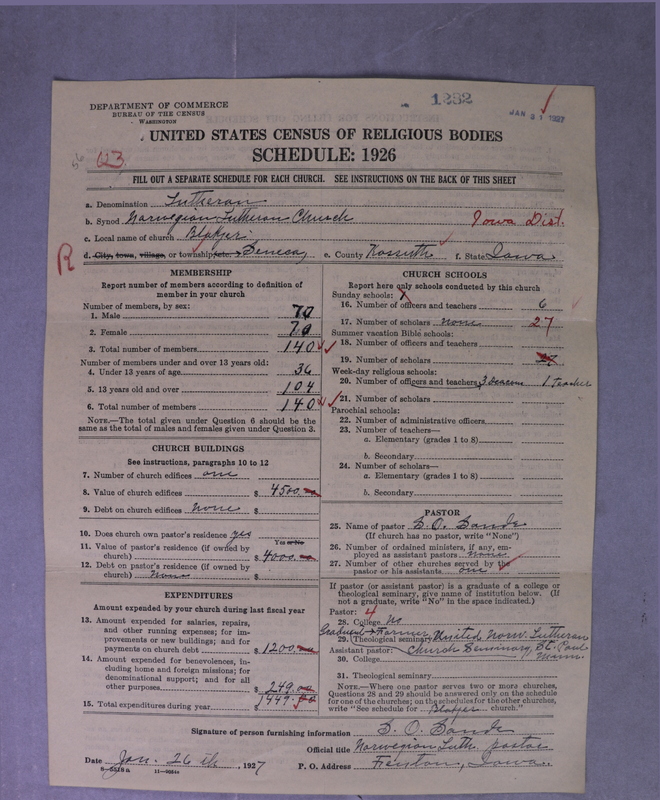 DEPARTMENT OF COMMERCE
BUREAU OF THE CENSUS
WASHINGTON
1282
JAN 31 1927
UNITED STATES CENSUS OF RELIGIOUS BODIES
SCHEDULE: 1926
FILL OUT A SEPARATE SCHEDULE FOR EACH CHURCH. SEE INSTRUCTIONS ON THE BACK OF THIS SHEET
a. Denomination Lutheran
b. Synod Norwegian Lutheran Church Iowa Dist.
c. Local name of church Blakjer
R
d. City, town, village, or township, etc. Seneca e. County Kossuth f. State Iowa
MEMBERSHIP
Report number of members according to definition of
member in your church
Number of members, by sex:
1. Male 70
2. Female 70
3. Total number of members 140
Number of members under and over 13 years old:
4. Under 13 years of age 36
5. 13 years old and over 104
6. Total number of members 140
NOTE.—The total given under Question 6 should be the
same as the total of males and females given under Question 3.
CHURCH BUILDINGS
See instructions, paragraphs 10 to 12
7. Number of church edifices one
8. Value of church edifices $ 4500
9. Debt on church edifices none $
10. Does church own pastor's residence yes
Yes or No
11. Value of pastor's residence (if owned by
church) $ 4000
12. Debt on pastor's residence (if owned by
church) none $
EXPENDITURES
Amount expended by your church during last fiscal year
13. Amount expended for salaries, repairs,
and other running expenses; for im-
provements or new buildings; and for
payments on church debt $ 1200
14. Amount expended for benevolences, in-
cluding home and foreign missions; for
denominational support; and for all
other purposes $ 249.00
15. Total expenditures during year $ 1449.00
CHURCH SCHOOLS
Report here only schools conducted by this church
Sunday schools: 1
16. Number of officers and teachers 6
17. Number of scholars none 27
Summer vacation Bible schools:
18. Number of officers and teachers
19. Number of scholars 27
Week-day religious schools:
20. Number of officers and teachers 3 deacons 1 teacher
21. Number of scholars
Parochial schools:
22. Number of administrative officers
23. Number of teachers—
a. Elementary (grades 1 to 8)
b. Secondary
24. Number of scholars—
a. Elementary (grades 1 to 8)
b. Secondary
PASTOR
25. Name of pastor S. O. Sande
(If church has no pastor, write "None")
26. Number of ordained ministers, if any, em-
ployed as assistant pastors none
27. Number of other churches served by the
pastor or his assistants one
If pastor (or assistant pastor) is a graduate of a college or
theological seminary, give name of institution below. (If
not a graduate, write "No" in the space indicated.)
Pastor: 4
28. College No
Graduent Former United Norw. Lutheran
29. Theological seminary
Assistant pastor: Church Seminary, St. Paul
30. College Minn.
31. Theological seminary
NOTE.—Where one pastor serves two or more churches,
Questions 28 and 29 should be answered only on the schedule
for one of the churches; on the schedules for the other churches,
write "See schedule for Blakjer church."
Signature of person furnishing information S. O. Sande
Official title Norwegian Luth. pastor
Date Jan. 26th, 1927 P. O. Address Fenton, Iowa.